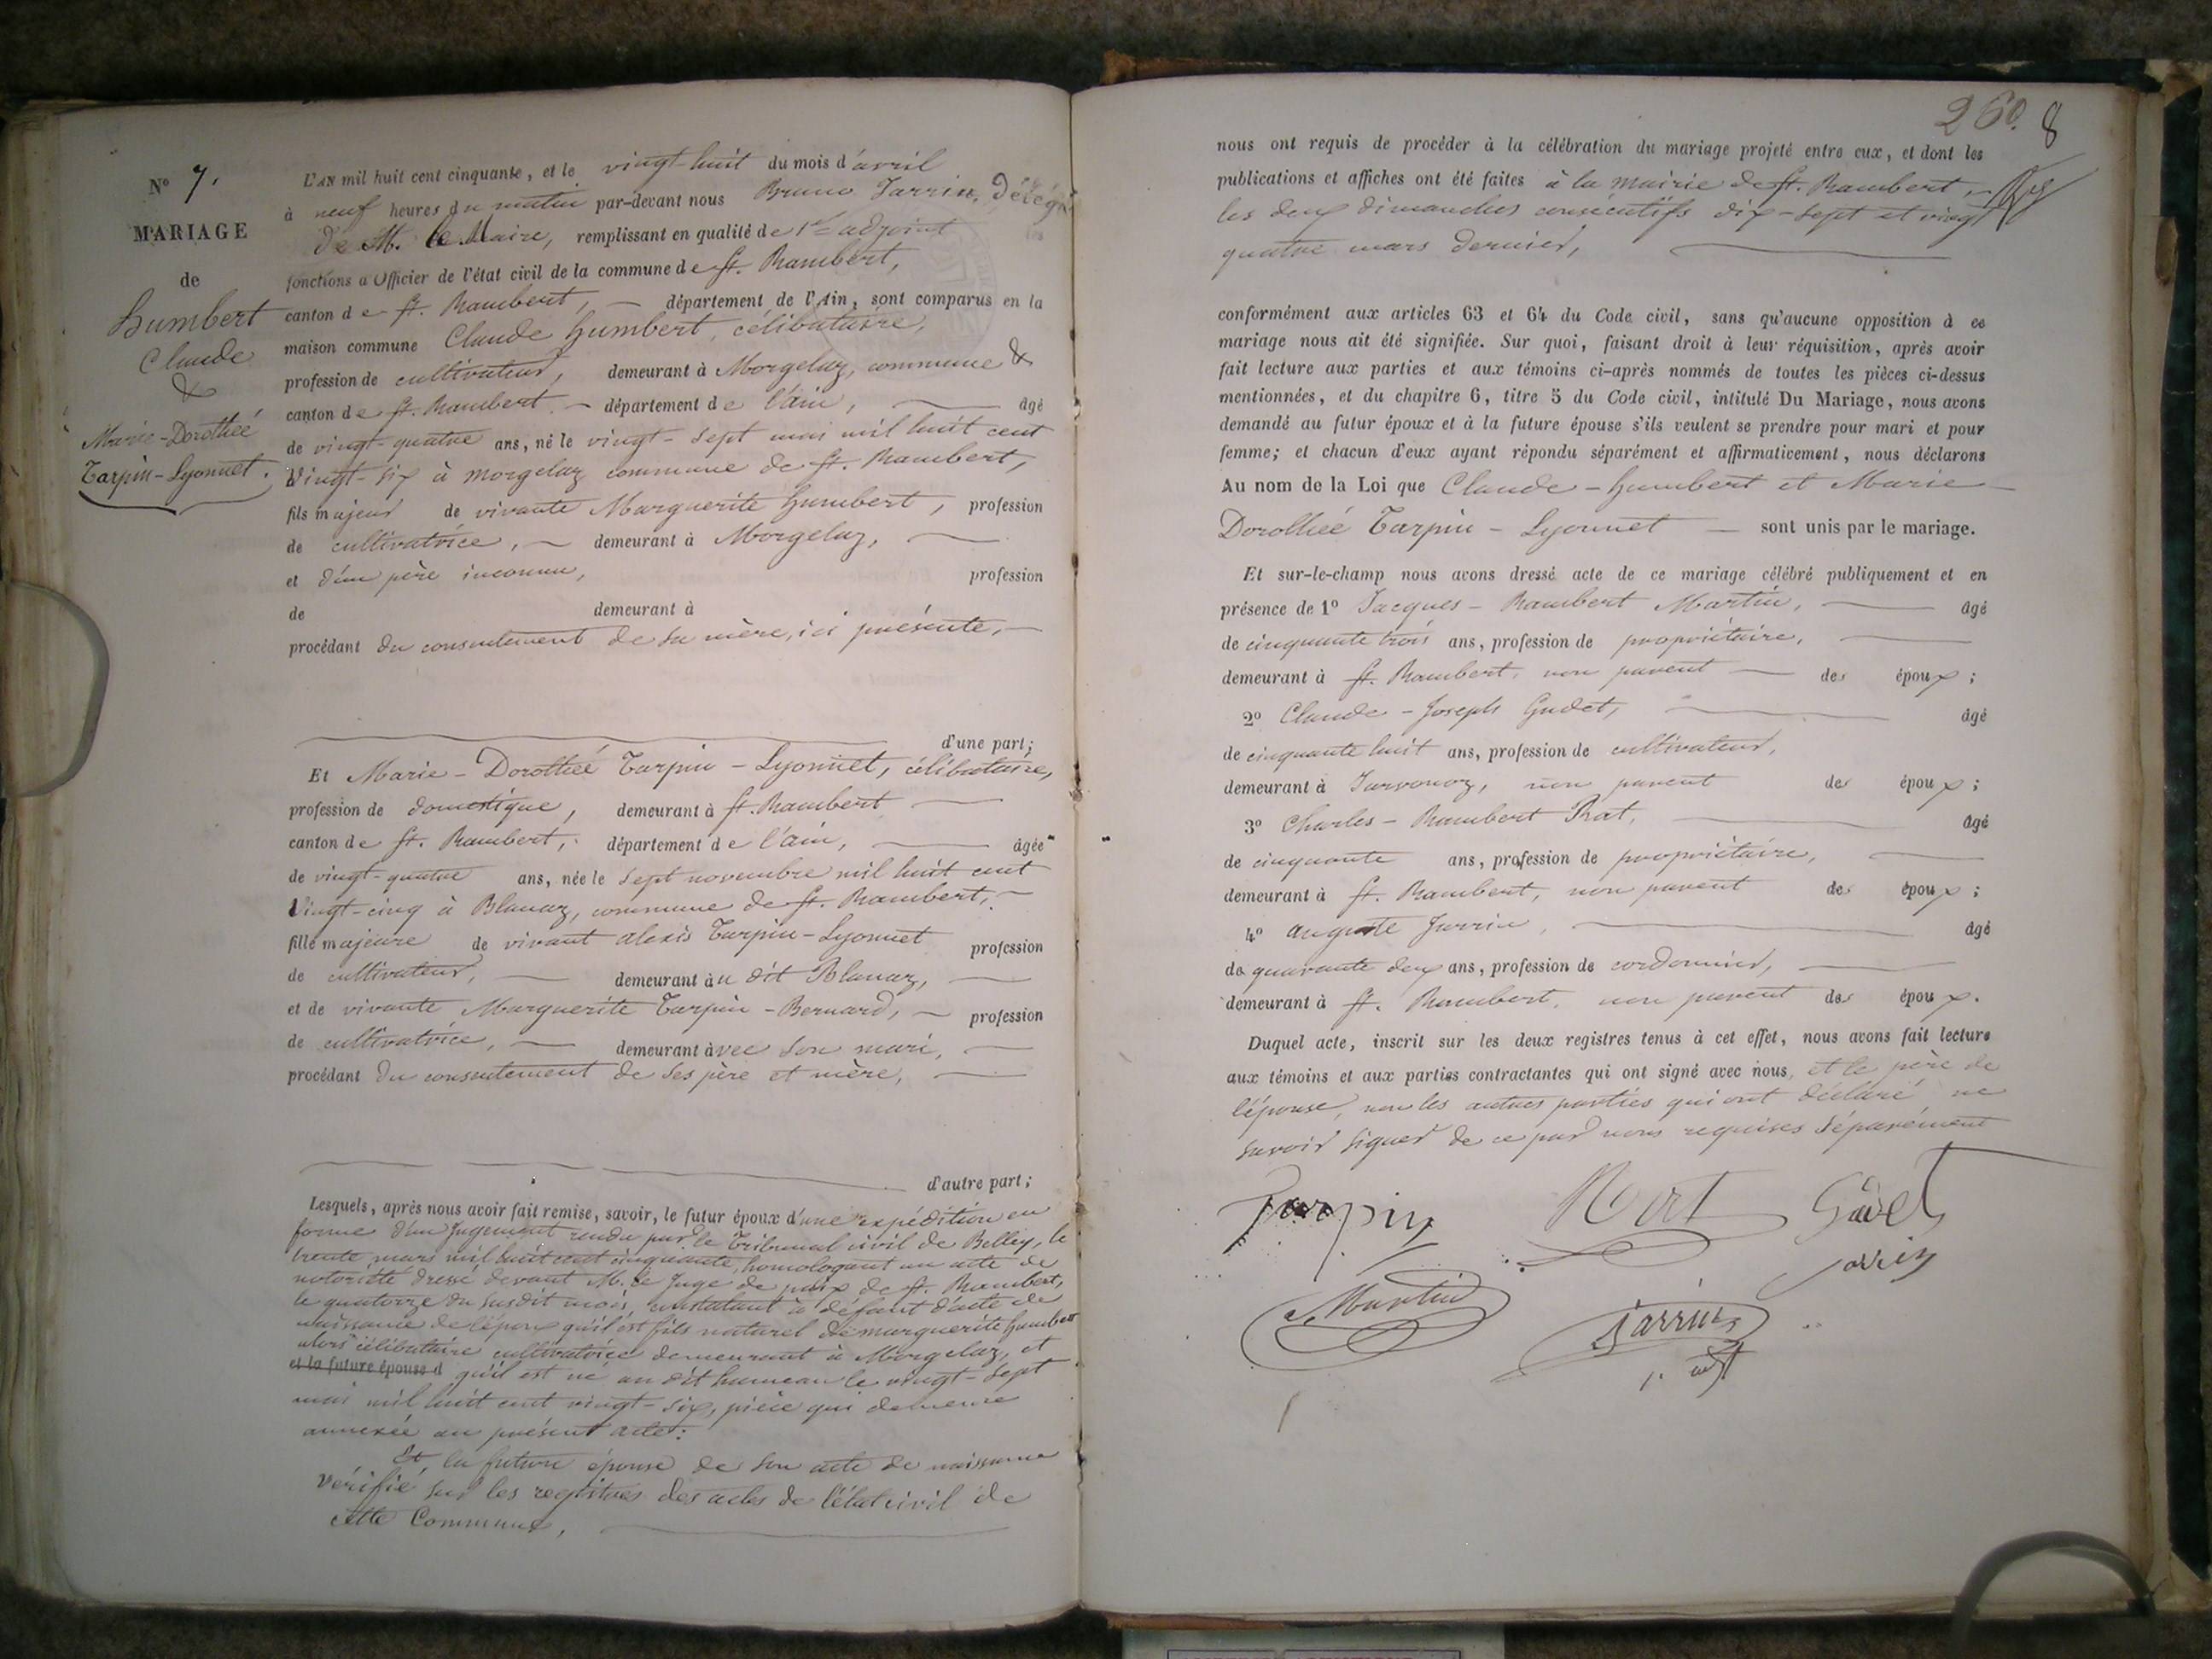 N° 7.
MARIAGE
de
Humbert
Claude
&
Marie-Dorothée
Tarpin-Lyonnet.
L'AN mil huit cent cinquante, et le vingt-huit du mois d'avril
à neuf heures du matin par-devant nous Bruno Jarrin, Délégué
de M. le Maire, remplissant en qualité de 1er adjoint les
fonctions d'Officier de l'état civil de la commune de St. Rambert,
canton de St. Rambert, — département de l'Ain, sont comparus en la
maison commune Claude humbert, célibataire,
profession de cultivateur, demeurant à Morgelaz, commune &
canton de St. Rambert — département de l'ain, — âgé
de vingt-quatre ans, né le vingt-sept mai mil huit cent
Vingt-six à Morgelaz commune de St. Rambert,
fils majeur de vivante Marguerite humbert, profession
de cultivatrice, — demeurant à Morgelaz, —
et d'un père inconnu, profession
de demeurant à
procédant du consentement de sa mère, ici présente, —
d'une part;
Et Marie-Dorothée Tarpin-Lyonnet, célibataire,
profession de domestique, demeurant à St. Rambert —
canton de St. Rambert, département de l'ain, — âgée
de vingt-quatre ans, née le sept novembre mil huit cent
Vingt-cinq à Blanaz, commune de St. Rambert, —
fille majeure de vivant alexis Tarpin-Lyonnet profession
de cultivateur, — demeurant au dit Blanaz, —
et de vivante Marguerite Tarpin-Bernard, — profession
de cultivatrice, — demeurant avec son mari, —
procédant du consentement de ses père et mère, —
d'autre part;
Lesquels, après nous avoir fait remise, savoir, le futur époux d'une expédition en
forme d'un Jugement rendu par le Tribunal civil de Belley, le
trente mars mil huit cent cinquante, homologant un acte de
notoriété dressé devant M. le Juge de paix de St. Rambert,
le quatorze du susdit mois, constatant à défaut d'acte de
naissance de l'époux qu'il est fils naturel de marguerite humbert
alors célibataire cultivatrice demeurant à Morgelaz, et
et la future épouse d qu'il est né au dit hameau le vingt-sept
mai mil huit cent vingt-six, pièce qui demeure
annexée au présent acte:
Et la future épouse de son acte de naissance
vérifié sur les registres des actes de l'état civil de
cette Commune, —
260. 8
nous ont requis de procéder à la célébration du mariage projeté entre eux, et dont les
publications et affiches ont été faites à la mairie de St. Rambert,
les deux dimanches consécutifs dix-sept et vingt
quatre mars dernier, —
conformément aux articles 63 et 64 du Code civil, sans qu'aucune opposition à ce
mariage nous ait été signifiée. Sur quoi, faisant droit à leur réquisition, après avoir
fait lecture aux parties et aux témoins ci-après nommés de toutes les pièces ci-dessus
mentionnées, et du chapitre 6, titre 5 du Code civil, intitulé Du Mariage, nous avons
demandé au futur époux et à la future épouse s'ils veulent se prendre pour mari et pour
femme; et chacun d'eux ayant répondu séparément et affirmativement, nous déclarons
Au nom de la Loi que Claude-humbert et Marie
Dorothée Tarpin-Lyonnet — sont unis par le mariage.
Et sur-le-champ nous avons dressé acte de ce mariage célébré publiquement et en
présence de 1° Jacques-Rambert Martin, — âgé
de cinquante trois ans, profession de propriétaire, —
demeurant à St. Rambert, non parent — des époux;
2° Claude-Joseph Gudet, — âgé
de cinquante huit ans, profession de cultivateur,
demeurant à Jarvonoz, non parent des époux;
3° Charles-Rambert Rat, — âgé
de cinquante ans, profession de propriétaire, —
demeurant à St. Rambert, non parent des époux;
4° auguste Jarrin, — âgé
de quarante deux ans, profession de cordonnier, —
demeurant à St. Rambert, non parent des époux.
Duquel acte, inscrit sur les deux registres tenus à cet effet, nous avons fait lecture
aux témoins et aux parties contractantes qui ont signé avec nous, et le père de
l'épouse, non les autres parties qui ont déclaré ne
savoir signer de ce par nous requises séparément
Tarpin Rat Gudet
Jarrin
Martin
Jarrin
1. adjt